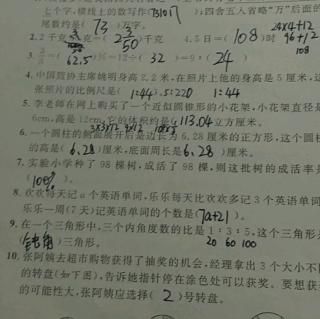 七个字,横线上的数写作(7310万),四舍五入省略“万”后面的
尾数约是(73)万字。
24×4+12
2. 2千克 克=(2 3/50)千克 4. 5日=(108)时 96+12
108
3. (62.5)%=12÷(32)=9:(24)
4. 中国篮协主席姚明身高2.2米,在照片上他的身高是5厘米,这
张照片的比例尺是(1:44). 5:220 1:44
5. 李老师在网上购买了一个近似圆锥形的小花架,小花架直径是
6cm,高是12cm,它的体积约是(113.04)立方厘米。
6. 一个圆柱的侧面展开后是边长为6.28厘米的正方形,这个圆柱
的高是(6.28)厘米,底面周长是(6.28)厘米。
7. 实验小学种了98棵树,成活了98棵,则这批树的成活率是
(100%)。
8. 欢欢每天记a个英语单词,乐乐每天比欢欢多记3个英语单词,
乐乐一周(7天)记英语单词的个数是(7a+21)。
9. 在一个三角形中,三个内角度数的比是1:3:5,这个三角形是
(钝角)三角形。 20 60 100
10. 张阿姨去超市购物获得了抽奖的机会,经理拿出3个大小不同
的转盘(如下图),告诉她指针停在涂色处可以获奖。要想获奖
的可能性大,张阿姨应选择(2)号转盘。